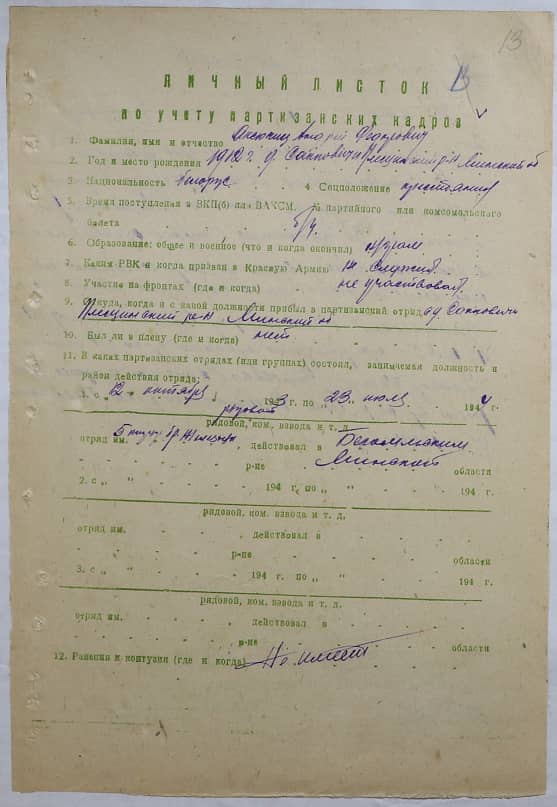 13
13
ЛИЧНЫЙ ЛИСТОК
по учету партизанских кадров
1. Фамилия, имя и отчество
2. Год и место рождения 1912 г. д. Сакновичи Плещинский р-н Минской об
3. Национальность белорус 4 Соцположение крестьянин
5. Время поступления в ВКП(б) или ВЛКСМ, № партийного или комсомольского
билета б/п.
6. Образование: общее и военное (что и когда окончил)
7. Каким РВК и когда призван в Красную Армию не служил
8. Участие на фронтах (где и когда) не участвовал
9. Откуда, когда и с какой должности прибыл в партизанский отряд д. Сакновичи
Плещинский р-н Минской об
10. Был ли в плену (где и когда) нет
11. В каких партизанских отрядах (или группах) состоял, занимаемая должность и
район действия отряда:
1. с „12 октября 1943 г. по „23 июля 1944 г.
рядовой
рядовой, ком. взвода и т. д.
отряд им. бр. Железняк, действовал в Бегомльском
р-не Минской области
2. с „ “ 194 г. по „ “ 194 г.
рядовой, ком. взвода и т. д.
отряд им. , действовал в
р-не области
3. с „ “ 194 г. по „ “ 194 г.
рядовой, ком. взвода и т. д.
отряд им. , действовал в
р-не области
12. Ранения и контузии (где и когда) Не имеет